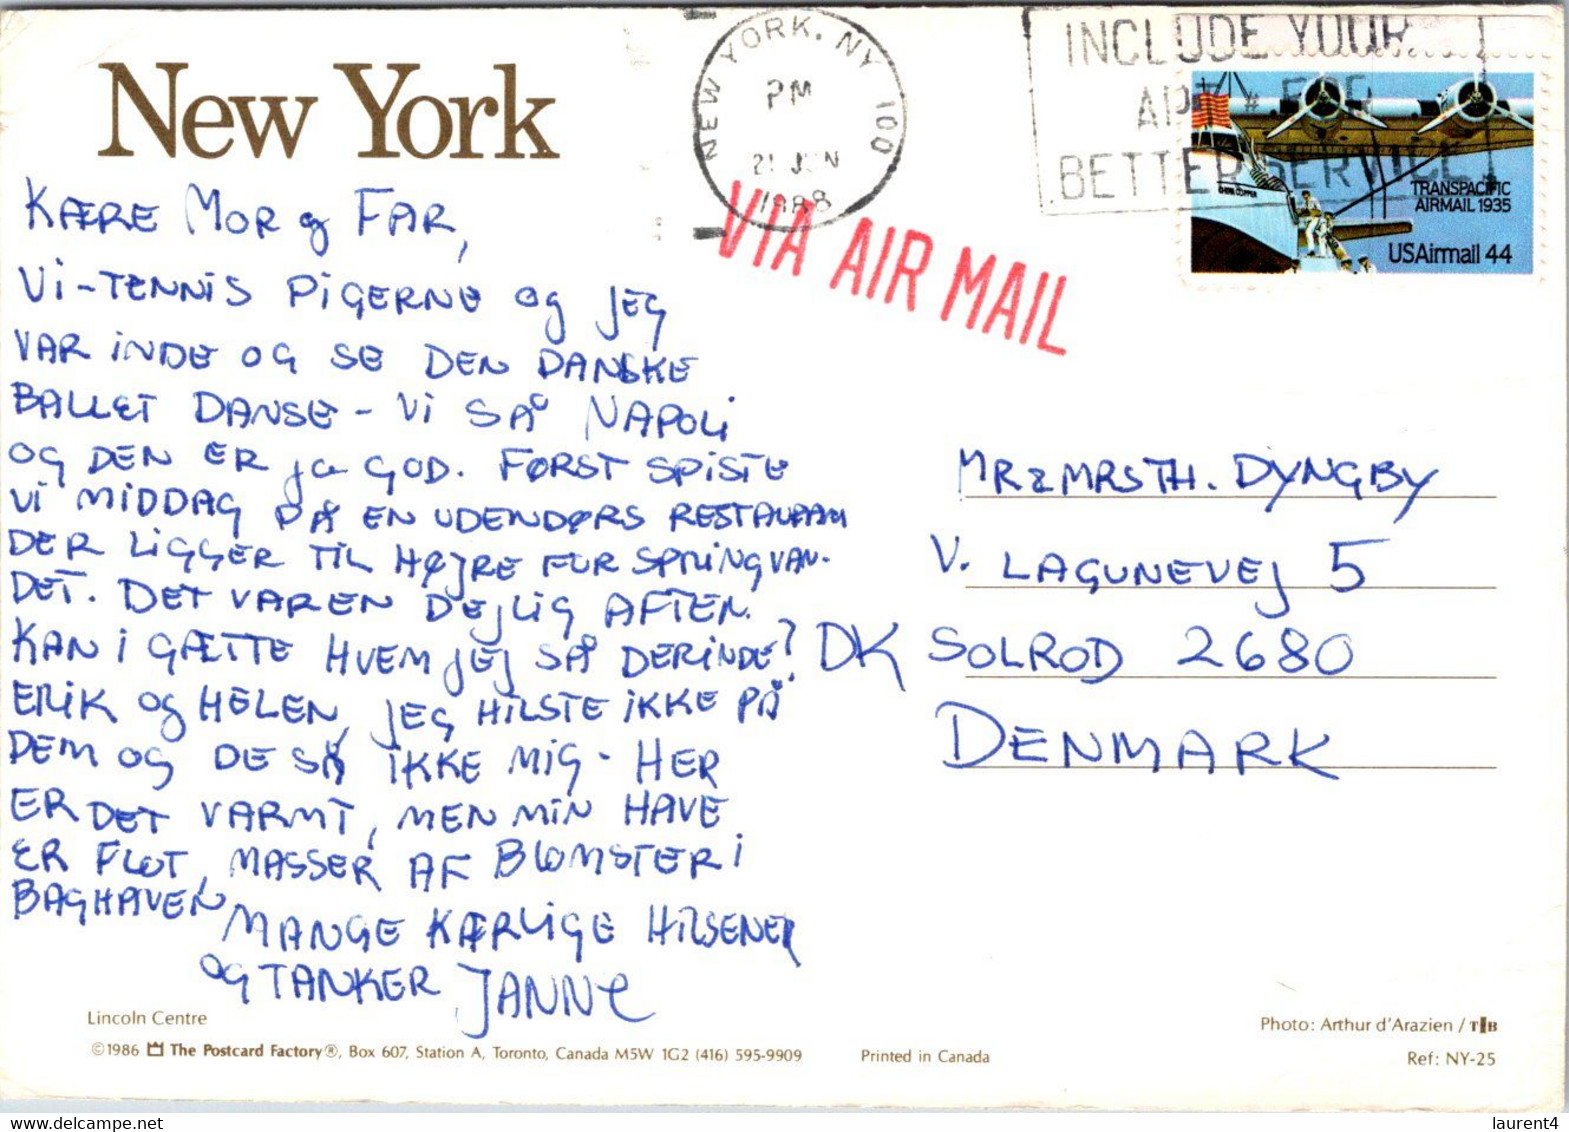 New York
NEW YORK, NY 100
PM
21 JUN
1988
INCLUDE YOUR
APT # FOR
BETTER SERVICE
CHINA CLIPPER
TRANSPACIFIC
AIRMAIL 1935
USAirmail 44
VIA AIR MAIL
KÆRE MOR og FAR,
Vi-TENNiS PiGERNE og JEG
VAR iNDE OG SE DEN DANSKE
BALLET DANSE - Vi SÅ NAPOLi
OG DEN ER ja GOD. FØRST SPiSTE
Vi MiDDAG PÅ EN UDENDØRS RESTAURANT
DER LiGGER TiL HØJRE FOR SPRiNGVAN-
DET. DET VAR EN DEJLiG AFTEN.
KAN i GÆTTE HVEM JEJ SÅ DERiNDE?
ERiK og HELEN, JEG HiLSTE iKKE PÅ
DEM OG DE SÅ iKKE MiG - HER
ER DET VARMT, MEN MiN HAVE
ER FLOT, MASSER AF BLOMSTER i
BAGHAVEN
MANGE KÆRLiGE HiLSENER
OG TANKER JANNE
MR & MRS TH. DYNGBY
V. LAGUNEVEJ 5
DK SOLROD 2680
DENMARK
Lincoln Centre
©1986 The Postcard Factory®, Box 607, Station A, Toronto, Canada M5W 1G2 (416) 595-9909
Printed in Canada
Photo: Arthur d'Arazien / TIB
Ref: NY-25
laurent4